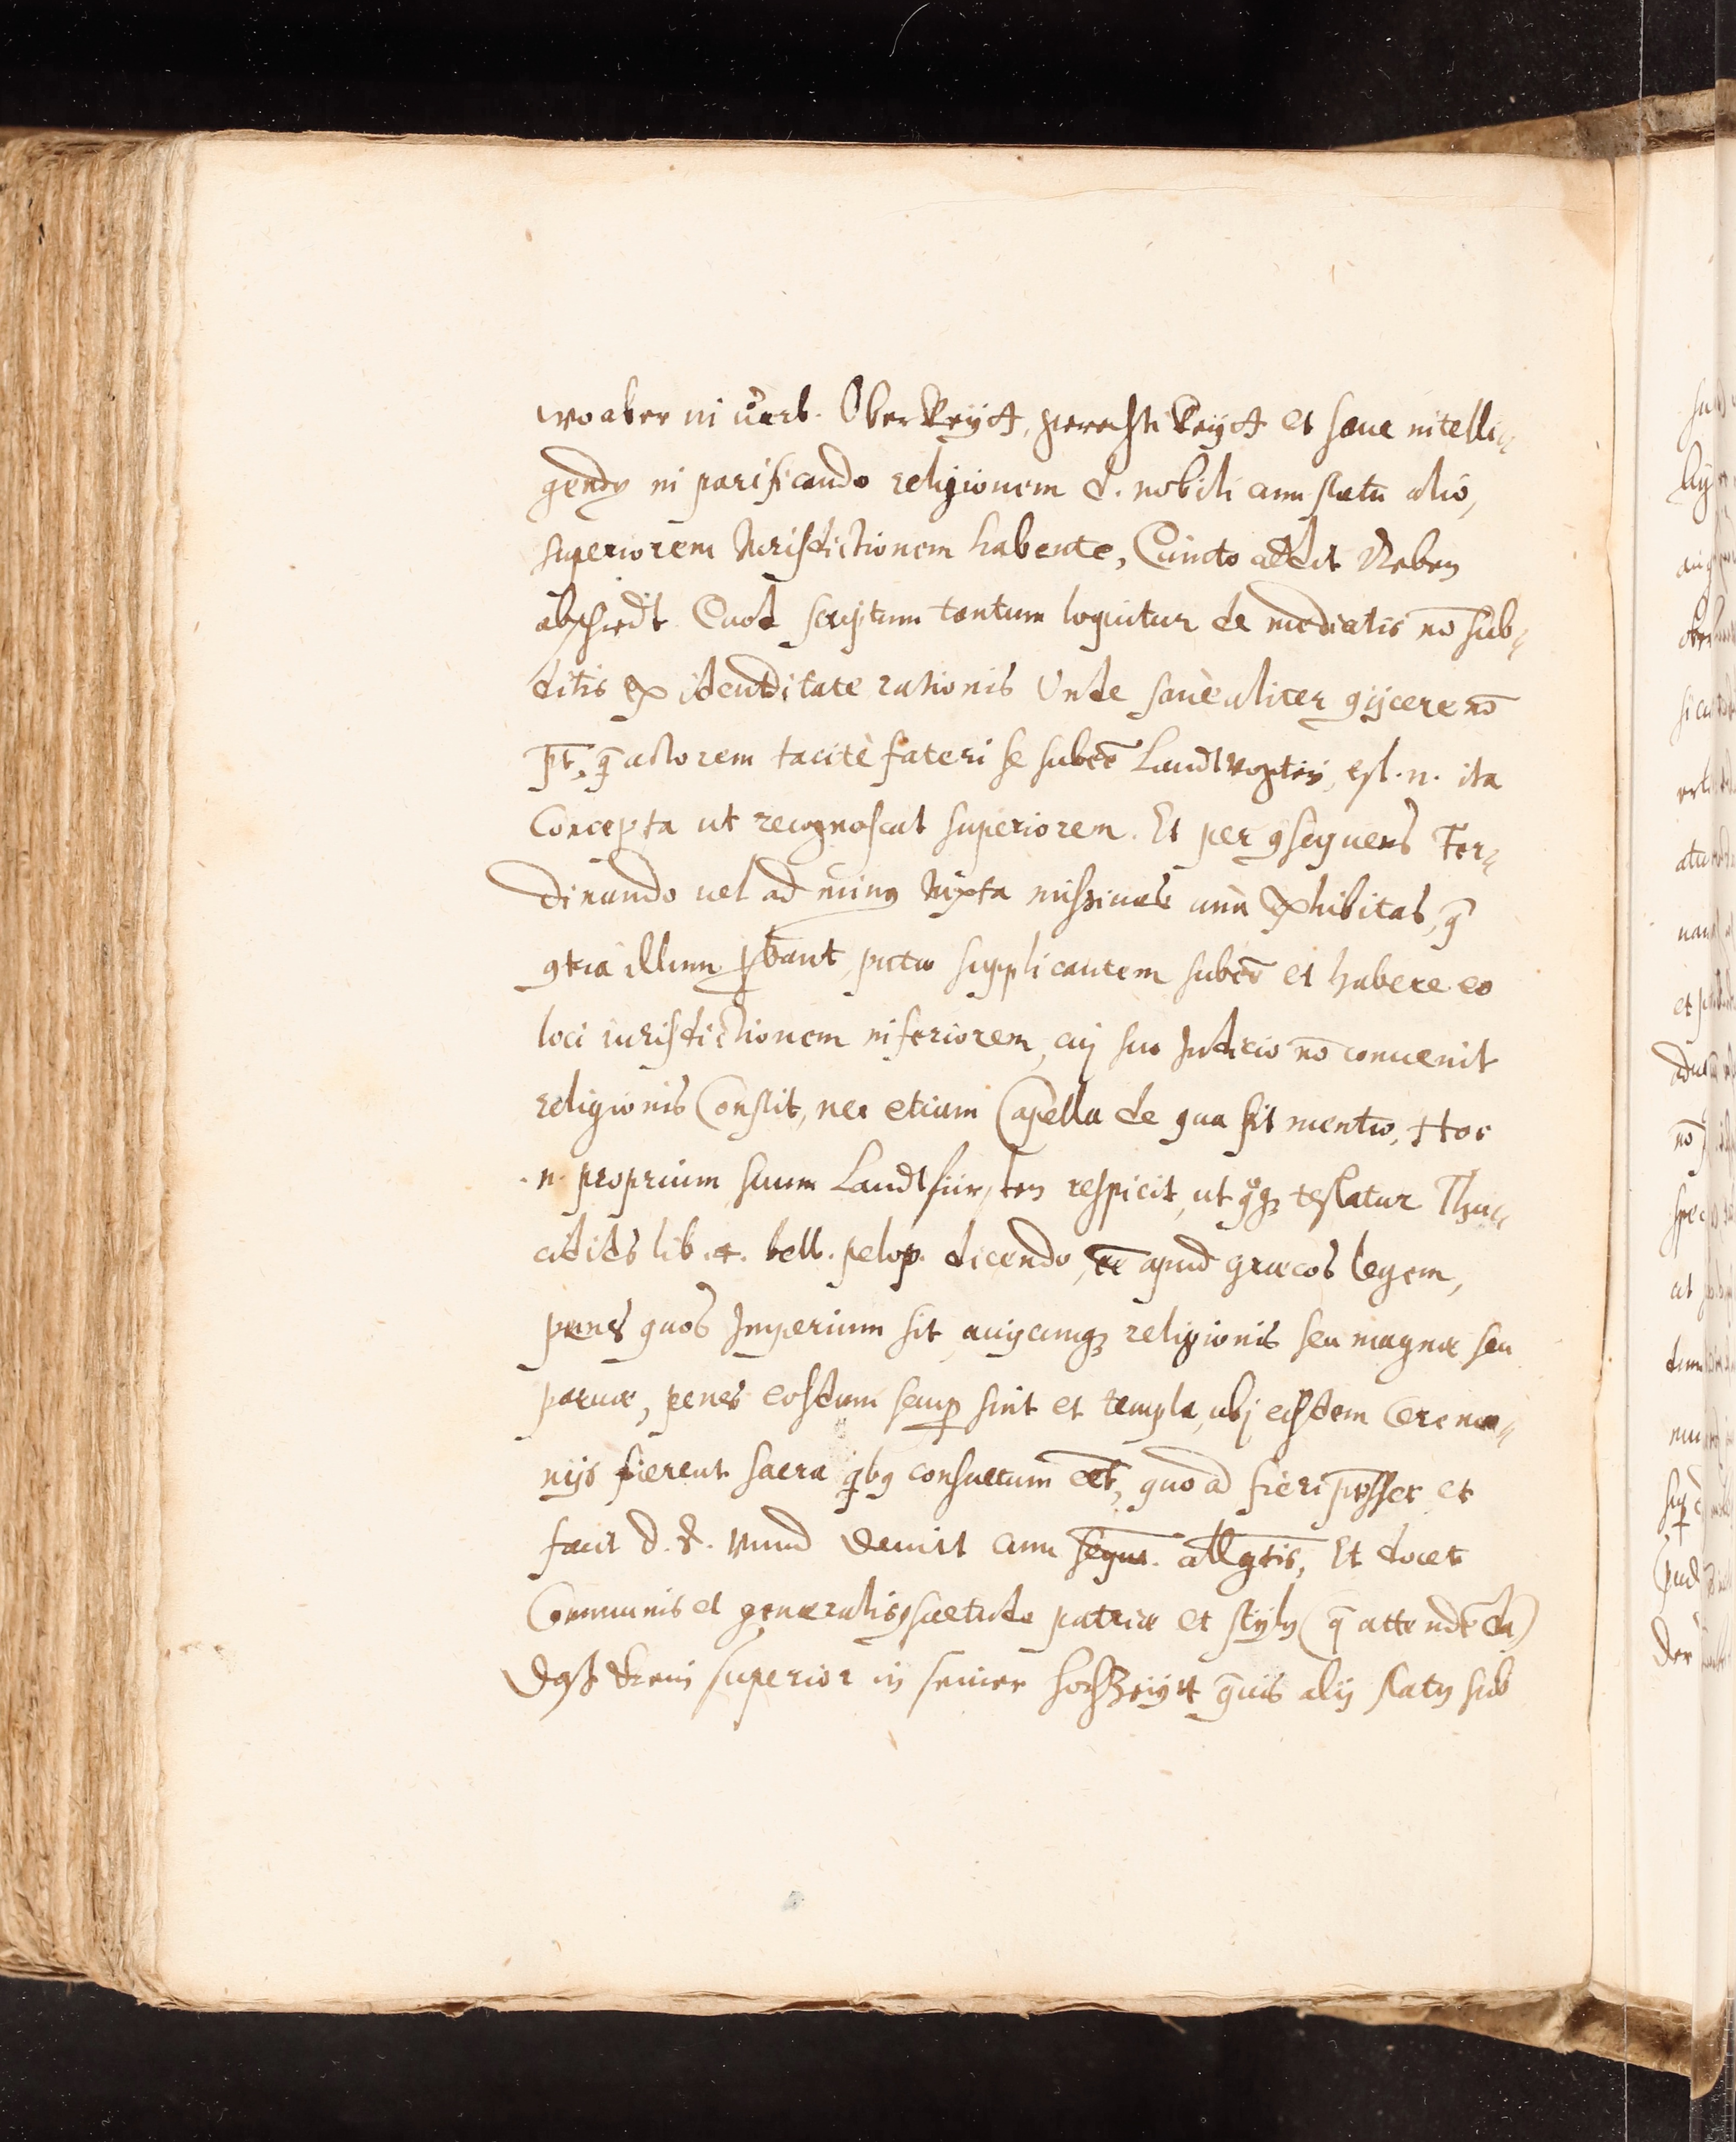 wo aber in verb. Oberkeyt, gerechtikeyt et sane intelli-
gendū in parificando religionem d. nobili cum statu alio,
superiorem Jurisdictionem habente, Quinto addit Neben
abschiedt Quod scriptum tantum loquitur de mediatis nō sub-
ditis ex identditate rationis Unde sane aliter ꝯijcere nō
pt, q̄ actorem tacitè fateri se subee Landtvogtey, est .n. ita
Concepta ut recognoscat superiorem. Et per ꝯsequens Fer-
dinando uel ad minꝰ Juxta missiuas unà exhibitas, q̄
ꝯtra illum ꝓbant, picto supplicantem subee et habere eo
loci iurisdictionem inferiorem, cuj suo Judicio nō conuenit
religionis Constit, nec etiam Capella de qua fit mentio, Hoc
.n. proprium suum Landtfürsten respicit, ut qͦꝫ testatur Thu-
cidides lib. 4. bell. pelop. dicendo, ee apud græcos legem,
penes quos Imperium sit, cuiꝰcunqꝫ religionis seu magnæ seu
paruæ, penes eosdem semꝑ sint et templa, ubj eisdem Ceremo-
nijs fierent sacra qͥbꝰ consuetum eet, quoad fieri posset et
facit d. d. Mund Deuict cum sequē. allgtis, Et docet
Communis et generalis ꝯsuetudo patriæ et stylꝰ (q̄ attendēda)
Dass kein superior in seiner hochzeijt q̄uis alij statꝰ sub